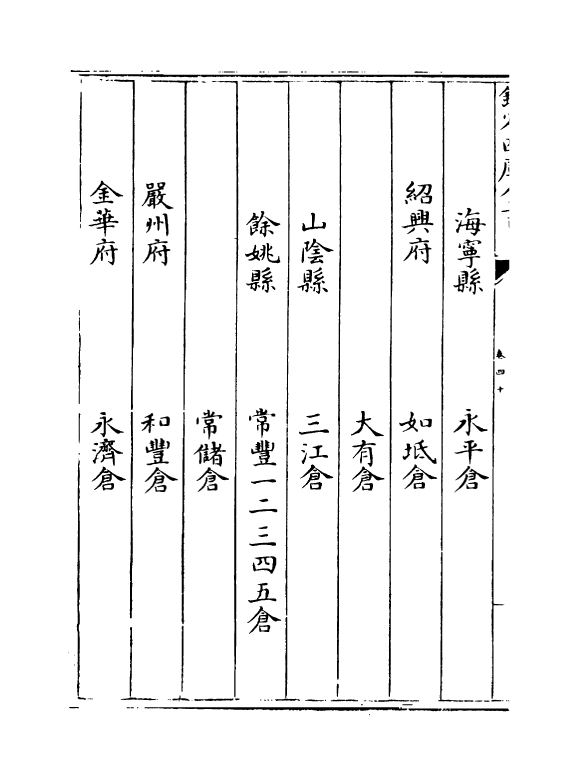 欽定四庫全書
卷四十
海寧縣 永平倉
紹興府 如坻倉
大有倉
山陰縣 三江倉
餘姚縣 常豐一二三四五倉
常儲倉
嚴州府 和豐倉
金華府 永濟倉